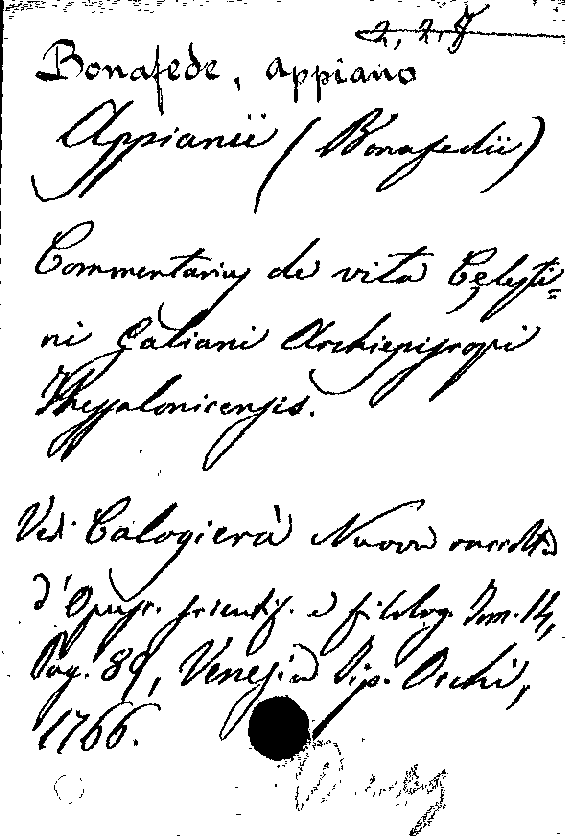 2, 2, 7
Bonafede, Appiano
Appianii (Bonafedii)
Commentarius de vita Cęlesti=
ni Galiani Archiepiscopi
Thessalonicensis.
Vedi Calogierà Nuova raccolta
d'Opusc. scientif. e filolog. Tom. 14,
Pag. 89, Venezia Tip. Occhi,
1766.